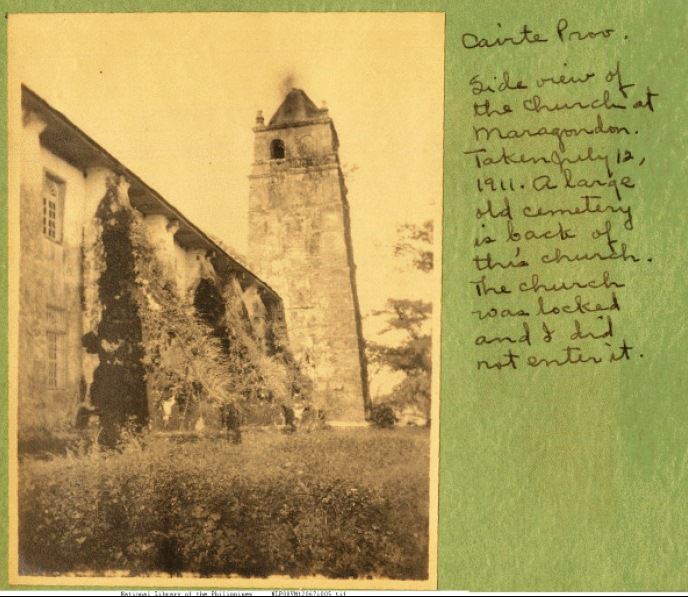 Cavite Prov.
Side view of
the church at
Maragondon.
Taken July 12,
1911. A large
old cemetery
is back of
this church.
The church
was locked
and I did
not enter it.
National Library of the Philippines